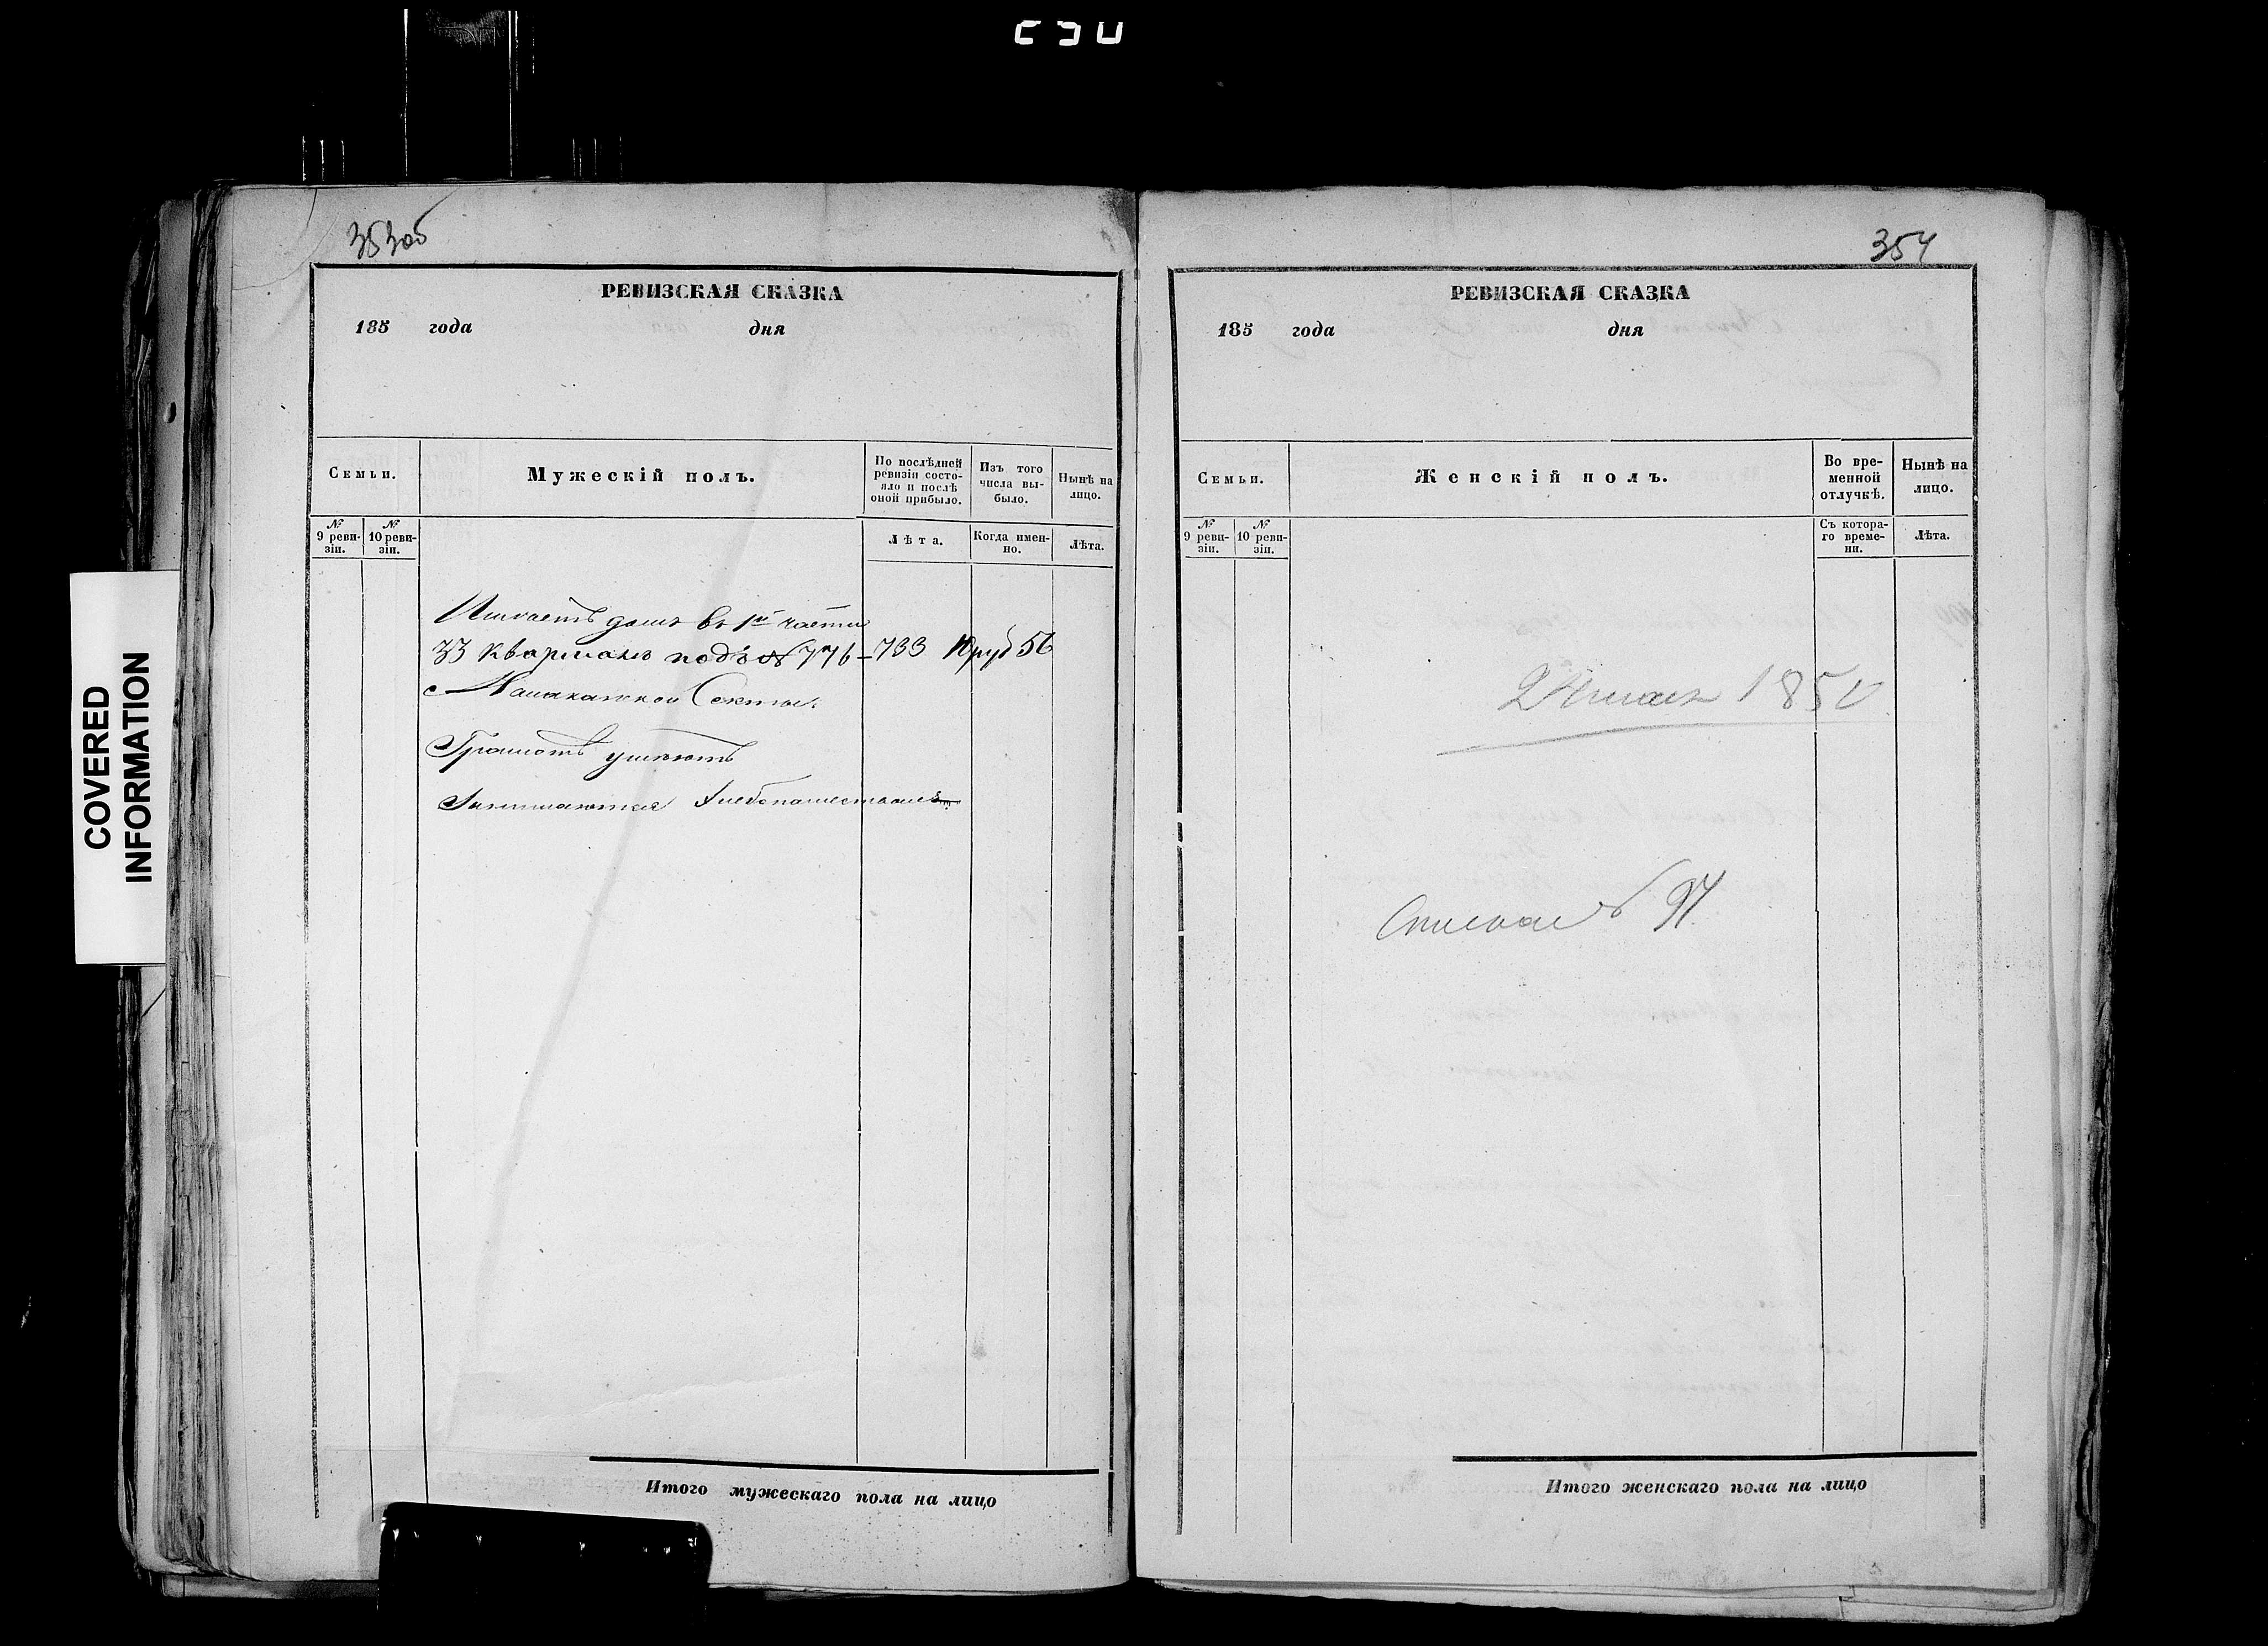 353 об
РЕВИЗСКАЯ СКАЗКА
185 года дня
Семьи.
Мужескій полъ.
По послѣдней ревизіи состояло и послѣ оной прибыло.
Изъ того числа выбыло.
Нынѣ на лицо.
№ 9 ревизіи.
№ 10 ревизіи.
Лѣта.
Когда именно.
Лѣта.
Имѣетъ домъ въ 1й части
33 Кварталѣ подъ № 776 - 733 руб 56
Секты.
Грамотѣ умѣютъ
Занимаются хлебопашествомъ
Итого мужескаго пола на лицо
354
РЕВИЗСКАЯ СКАЗКА
185 года дня
Семьи.
Женскій полъ.
Во временной отлучкѣ.
Нынѣ на лицо.
№ 9 ревизіи.
№ 10 ревизіи.
Съ котораго времени.
Лѣта.
185
97
Итого женскаго пола на лицо
COVERED
INFORMATION